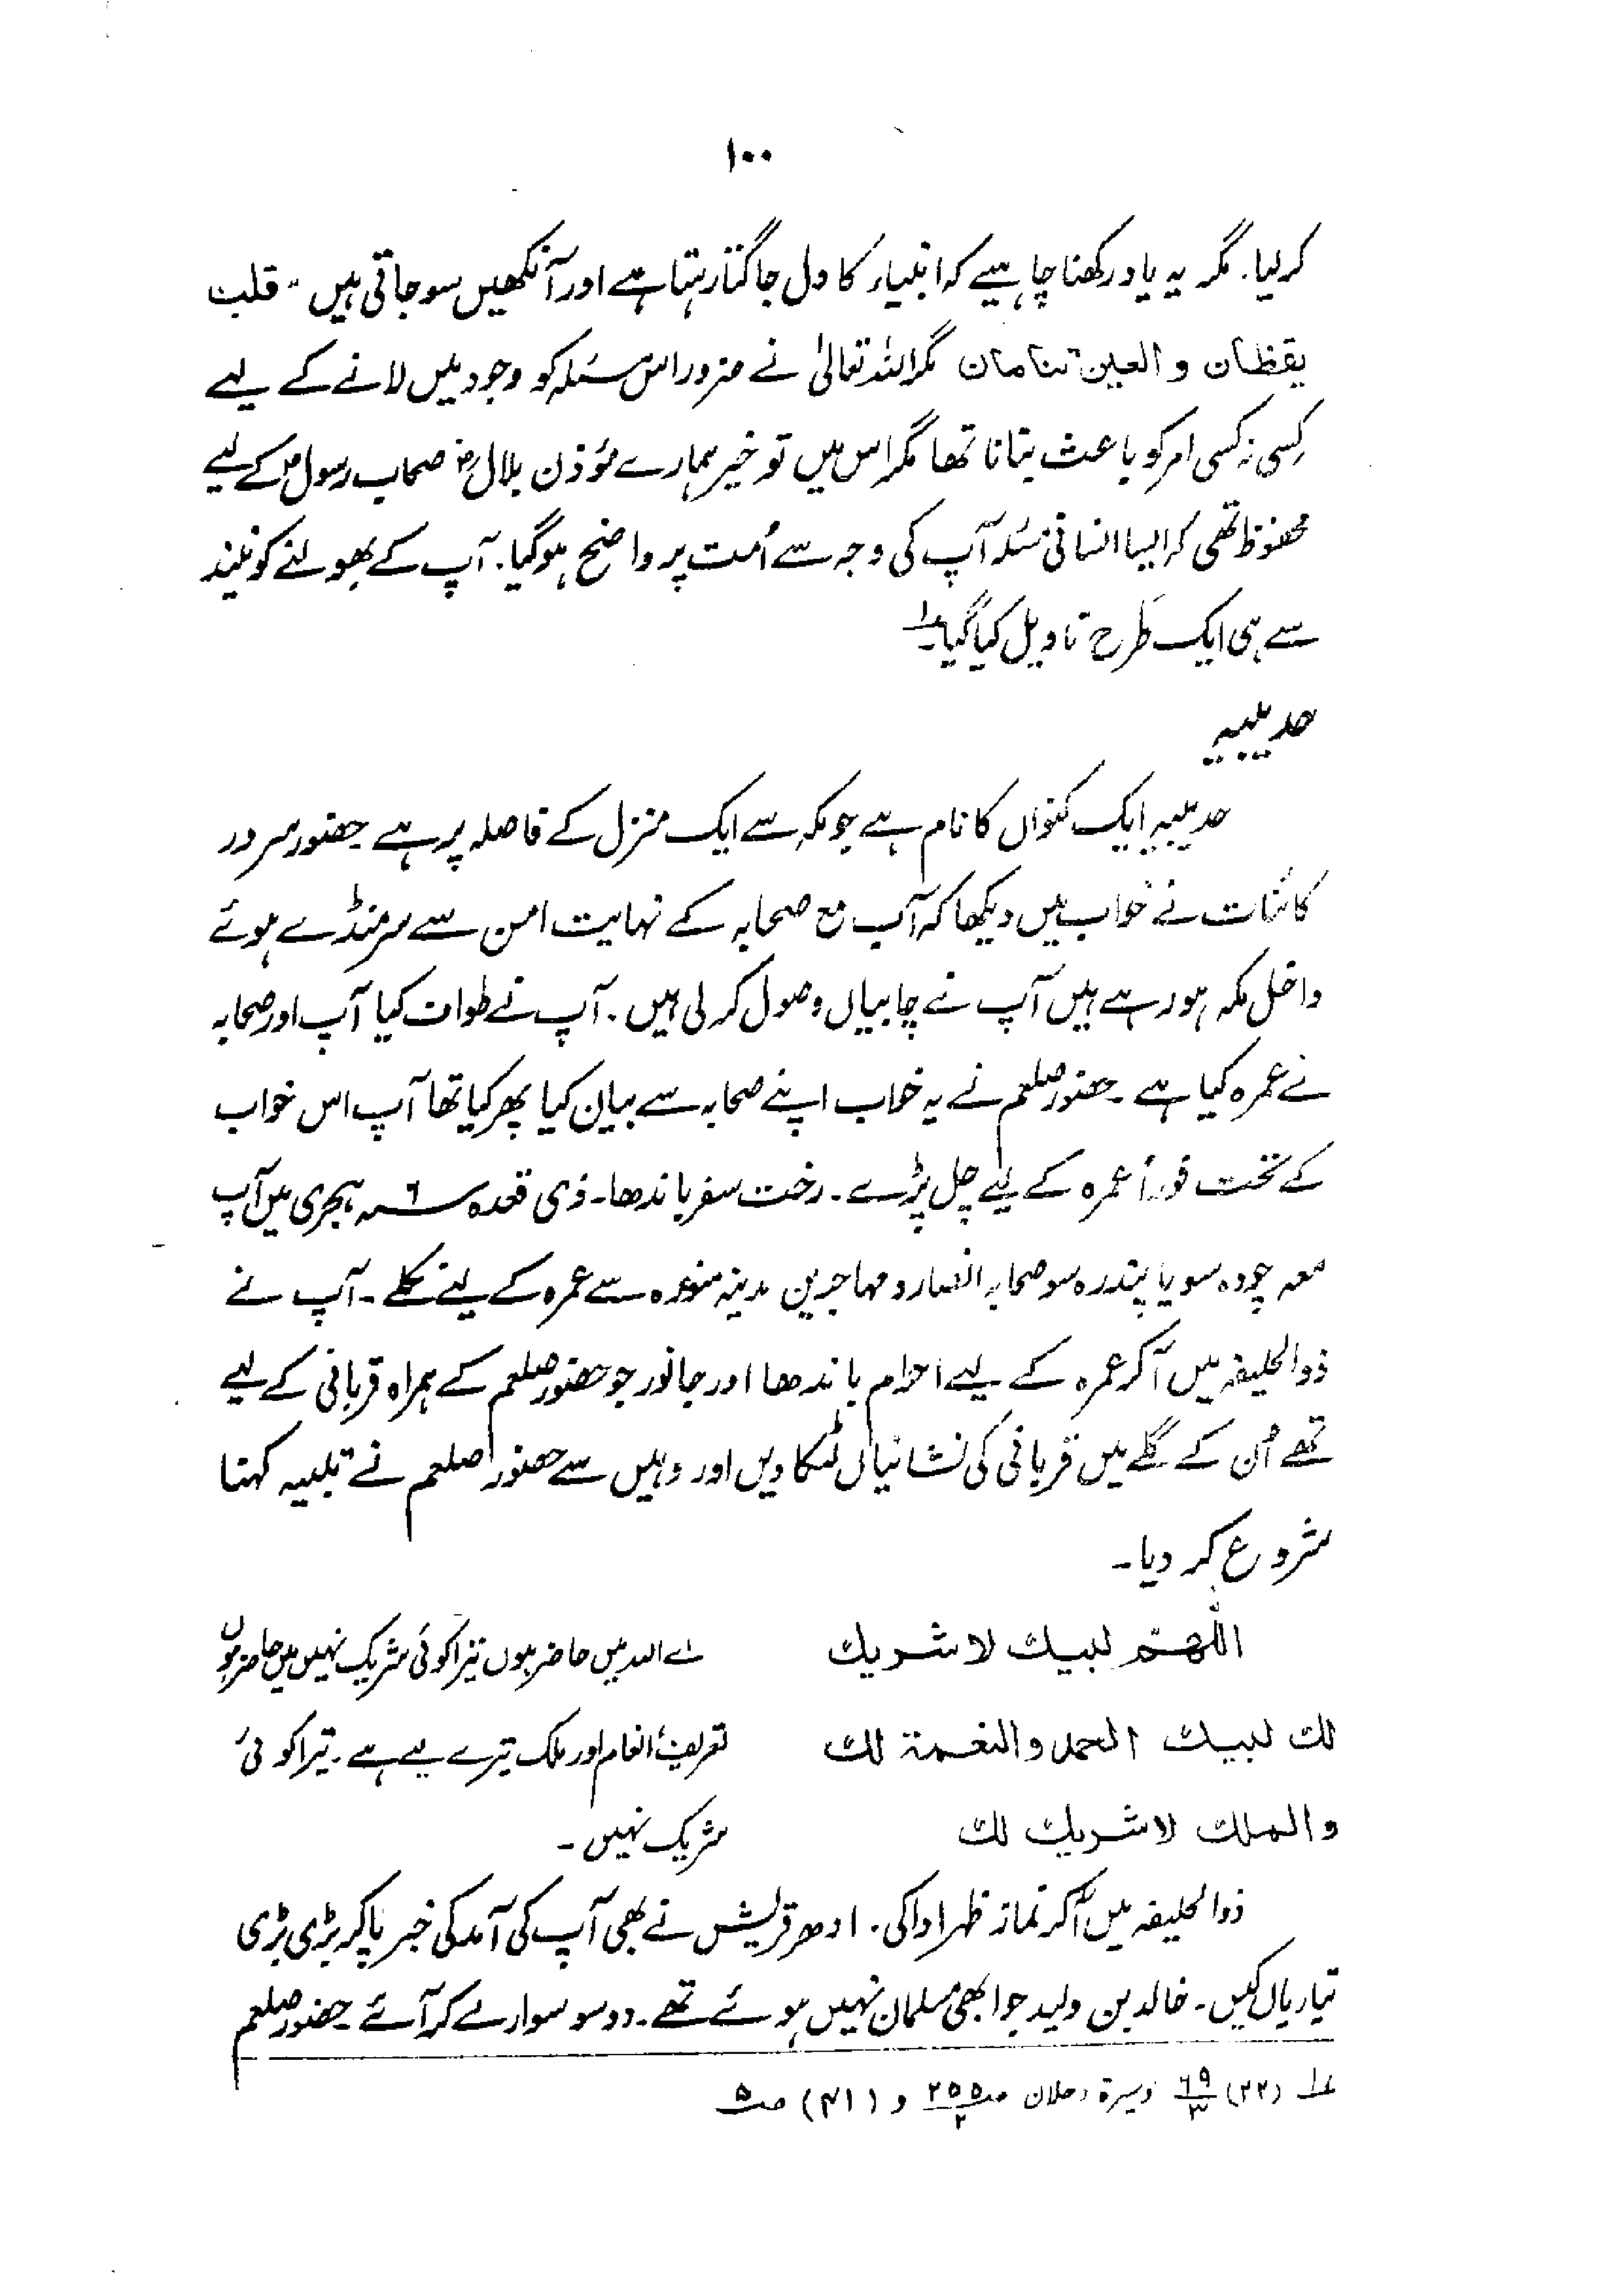 ۱۰۰
کرلیا۔ مگر یہ یاد رکھنا چاہیے کہ انبیاء کا دل جاگتا رہتا ہے اور آنکھیں سو جاتی ہیں۔ قلبت
یقظان و العین تنامان مگر اللہ تعالیٰ نے ضرور اس مسئلہ کو وجود میں لانے کے لیے
کسی نہ کسی امر کو باعث بنانا تھا مگر اس میں تو خیر ہمارے مؤذن بلالؓ صحاب رسولؐ کے لیے
محفوظ تھی کہ ایسا انسانی مسئلہ آپ کی وجہ سے اُمت پر واضح ہوگیا۔ آپ کے بھولنے کو نیند
سے ہی ایک طرح تاویل کیا گیا۔ ؎۱
حدیبیہ
حدیبیہ ایک کنواں کا نام ہے جو مکہ سے ایک منزل کے فاصلہ پر ہے حضور سرور
کائنات نے خواب میں دیکھا کہ آپ مع صحابہ کے نہایت امن سے سر منڈے ہوئے
داخل مکہ ہو رہے ہیں آپ نے چابیاں وصول کر لی ہیں۔ آپ نے طواف کیا آپ اور صحابہ
نے عمرہ کیا ہے۔ حضور صلعم نے یہ خواب اپنے صحابہ سے بیان کیا پھر کیا تھا آپ اس خواب
کے تحت فوراً عمرہ کے لیے چل پڑے۔ رخت سفر باندھا۔ ذی قعدہ سنہ ۶ ہجری میں آپ
معہ چودہ سو یا پندرہ سو صحابہ انصار و مہاجرین مدینہ منورہ سے عمرہ کے لیئے نکلے۔ آپ نے
ذوالحلیفہ میں آکر عمرہ کے لیے احرام باندھا اور جانور جو حضور صلعم کے ہمراہ قربانی کے لیے
تھے اُن کے گلے میں قربانی کی نشانیاں لٹکا دیں اور وہیں سے حضور صلعم نے تلبیہ کہنا
شروع کر دیا۔
اللّٰھم لبیک لا شریک اے اللہ میں حاضر ہوں تیرا کوئی شریک نہیں میں حاضر ہوں
لک لبیک الحمد والنعمۃ لک تعریف انعام اور ملک تیرے لیے ہے۔ تیرا کوئی
والملک لا شریک لک شریک نہیں۔
ذوالحلیفہ میں آکر نماز ظہر ادا کی۔ ادھر قریش نے بھی آپ کی آمد کی خبر پاکر بڑی بڑی
تیاریاں کیں۔ خالد بن ولید جو ابھی مسلمان نہیں ہوئے تھے۔ دو سو سوار لے کر آئے حضور صلعم
؎۱ (۲۲) ۶۹/۳ وسیرۃ دحلان ص ۲۵۵/۲ و (۴۱) ص ۵